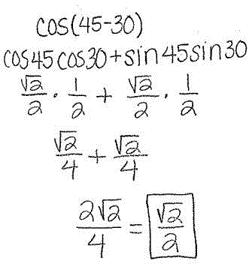 cos(45-30)
cos45cos30+sin45sin30
√2/2 · 1/2 + √2/2 · 1/2
√2/4 + √2/4
2√2/4 = √2/2